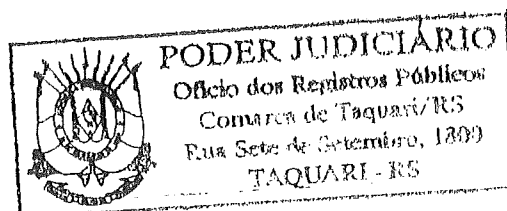 PODER JUDICIÁRIO
Ofício dos Registros Públicos
Comarca de Taquari/RS
Rua Sete de Setembro, 1800
TAQUARI - RS